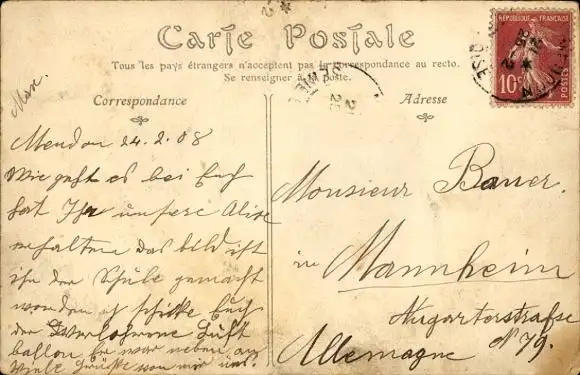 Carte Postale
Tous les pays étrangers n'acceptent pas la correspondance au recto.
Se renseigner à la poste.
Correspondance
Adresse
RÉPUBLIQUE FRANÇAISE
10c
POSTES
Meudon 24.2.08
Wie geht es bei Euch
hat Ihr unsere Alise
erhalten das bild ist
in der Schule gemacht
worden ich schicke Euch
der Luft
ballon er war neben an
viele von mir
Monsieur Bauer.
in
Mannheim
N 79.
Allemagne